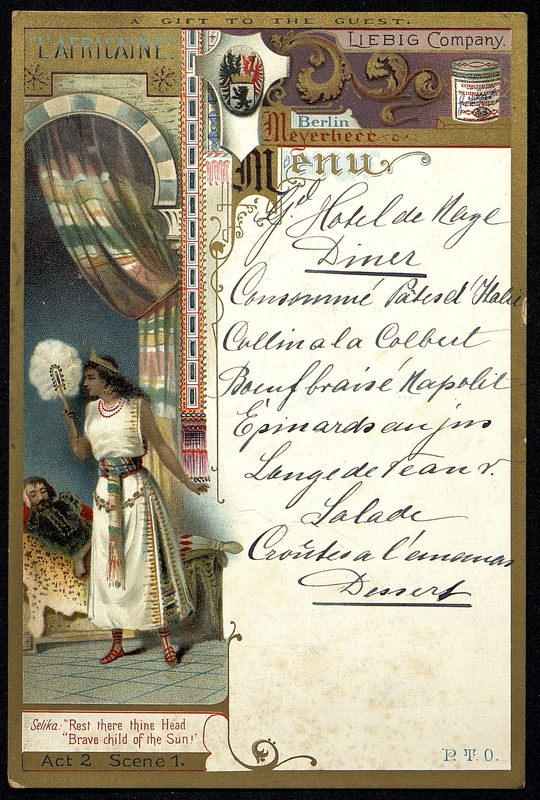 A GIFT TO THE GUEST.
"L'AFRICAINE".
LIEBIG COMPANY.
Berlin
Meyerbeer
Menu
Gd. Hotel de Naye
Diner
Consommé Pâtes d'Italie
Collin a la Colbert
Boeuf braisé Napolit
Épinards au jus
Longe de Veau r.
Salade
Croûtes a l'ananas
Dessert
Selika. "Rest there thine Head
"Brave child of the Sun!"
Act 2 Scene 1.
P. T. O.